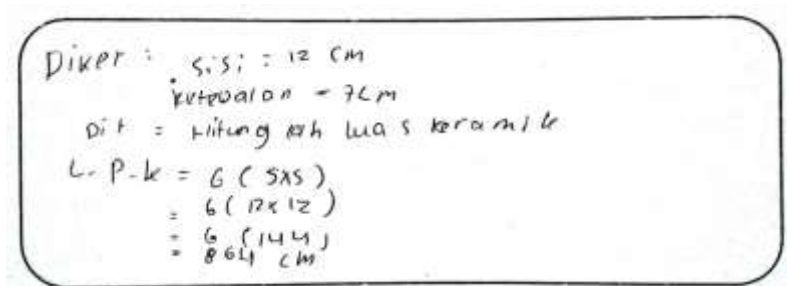 Diket : sisi = 12 cm
ketebalan = 7cm
Dit = Hitunglah luas keramik
L.P.k = 6 ( sxs )
= 6 ( 12x12 )
= 6 (144)
= 864 cm